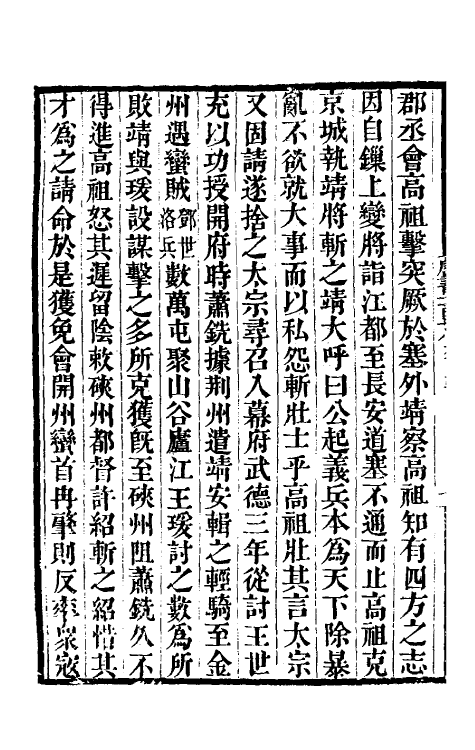 郡丞會高祖擊突厥於塞外靖察高祖知有四方之志
因自鏁上變將詣江都至長安道塞不通而止高祖克
京城執靖將斬之靖大呼曰公起義兵本為天下除暴
亂不欲就大事而以私怨斬壯士乎高祖壯其言太宗
又固請遂捨之太宗尋召入幕府武德三年從討王世
充以功授開府時蕭銑據荆州遣靖安輯之輕騎至金
州遇蠻賊鄧世洛兵數萬屯聚山谷廬江王瑗討之數為所
敗靖與瑗設謀擊之多所克獲旣至硤州阻蕭銑久不
得進高祖怒其遲留陰敕硤州都督許紹斬之紹惜其
才為之請命於是獲免會開州蠻首冉肇則反率眾寇